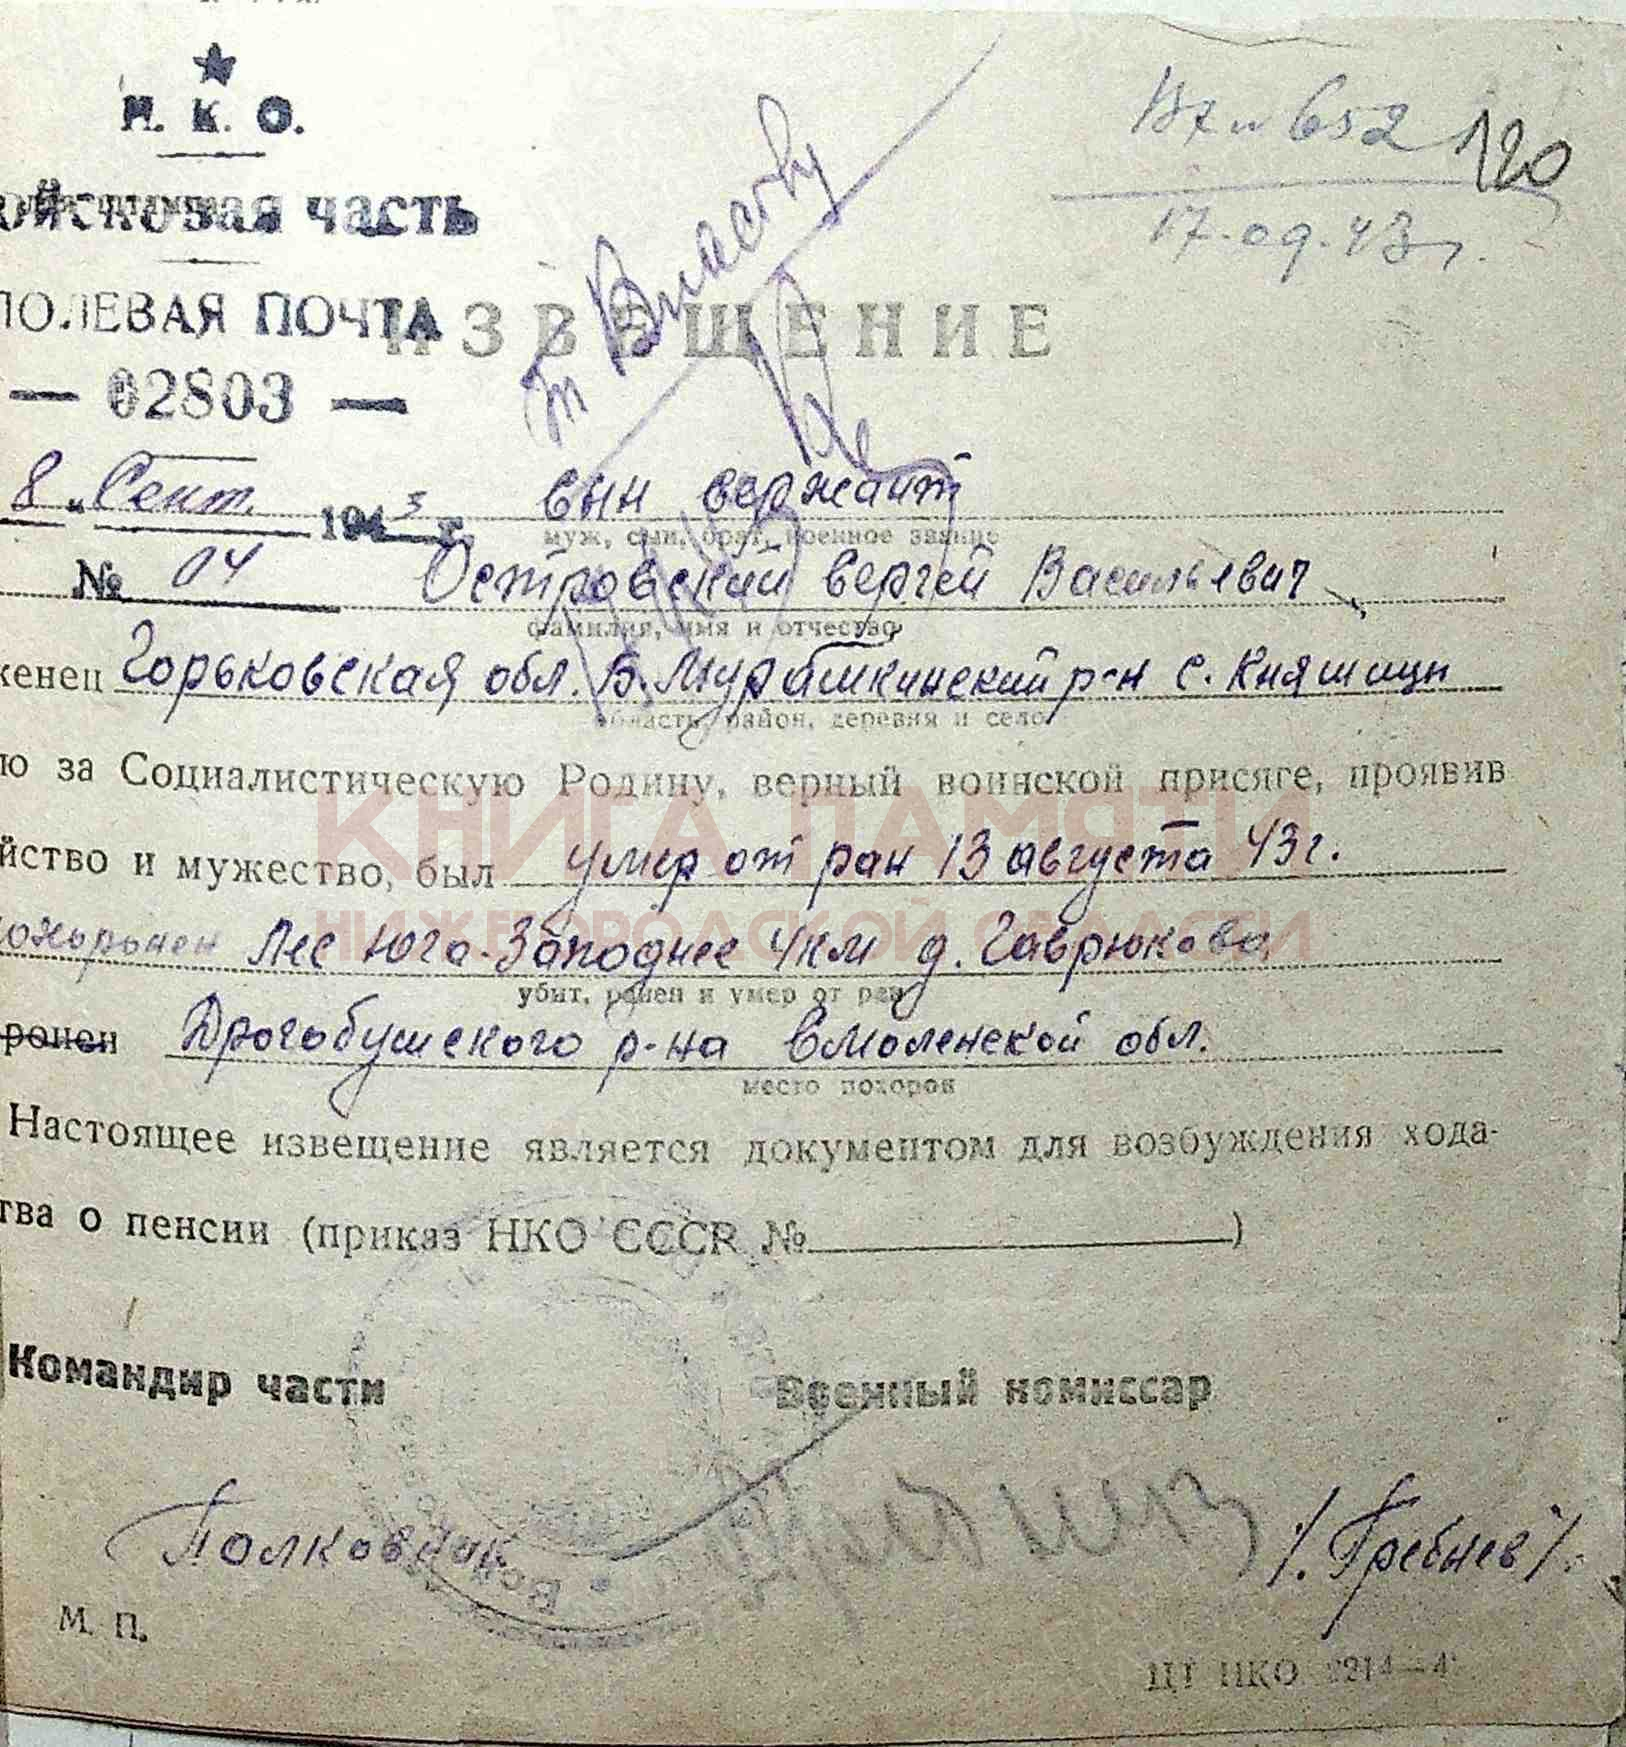 Н. К. О.
652
120
17.09.43г.
ойсковая часть
ПОЛЕВАЯ ПОЧТА
ИЗВЕЩЕНИЕ
— 02803 —
т Власову
8 " Сент. 1943 г.
сын сержант
муж, сын, брат, военное звание
№ 04
Островский Сергей Васильевич
фамилия, имя и отчество
женец Горьковская обл. Б. Мурашкинский р-н с. Княшицы
область, район, деревня и село
ю за Социалистическую Родину, верный воинской присяге, проявив
йство и мужество, был умер от ран 13 августа 43г.
КНИГА ПАМЯТИ
НИЖЕГОРОДСКОЙ ОБЛАСТИ
похоронен Лес Юго-Западнее 4км д. Гаврюково
убит, ранен и умер от ран
ронен Дрогобушского р-на Смоленской обл.
место похорон
Настоящее извещение является документом для возбуждения хода-
тва о пенсии (приказ НКО СССР № )
Командир части
Военный комиссар
Полковник
/. Гребнев/.
М. П.